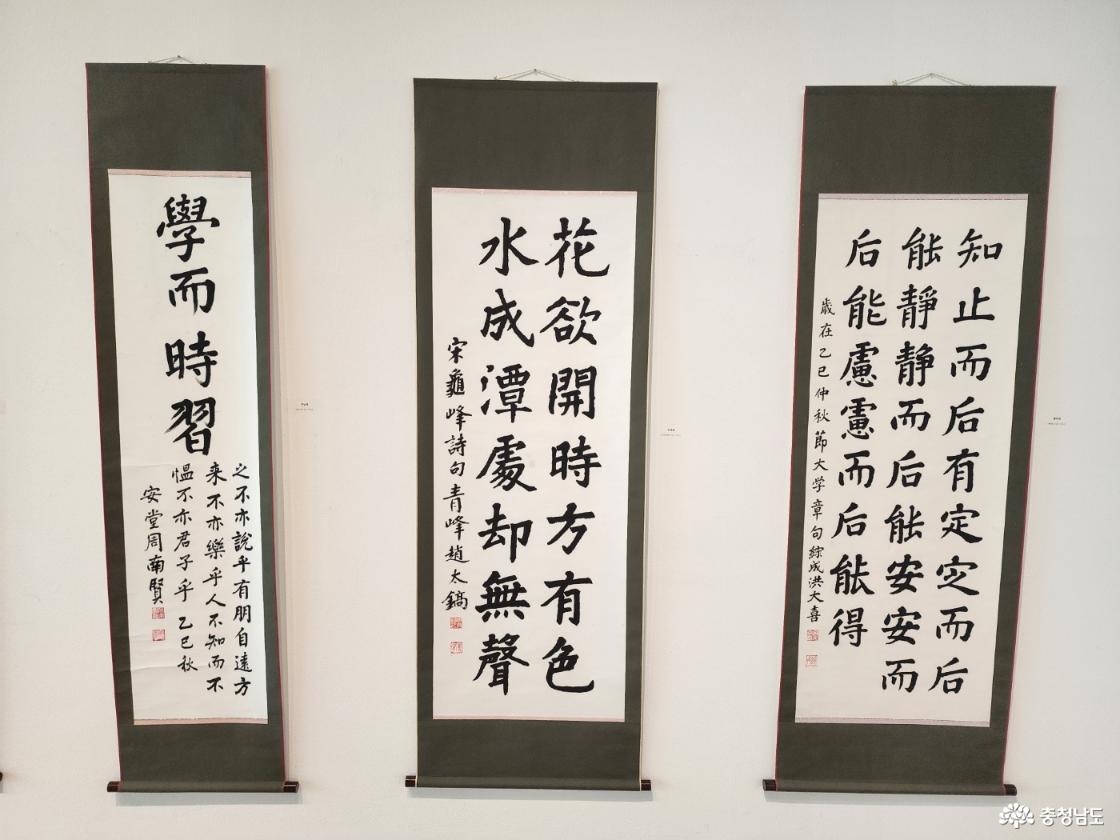 學而時習
之不亦說乎有朋自遠方
来不亦樂乎人不知而不
慍不亦君子乎 乙巳秋
安堂周南賢
花欲開時方有色
水成潭處却無聲
宋龜峰詩句青峰趙太鎬
知止而后有定定而后
能靜静而后能安安而
后能慮慮而后能得
歲在乙巳仲秋節大学章句綜成洪大喜
충청남도